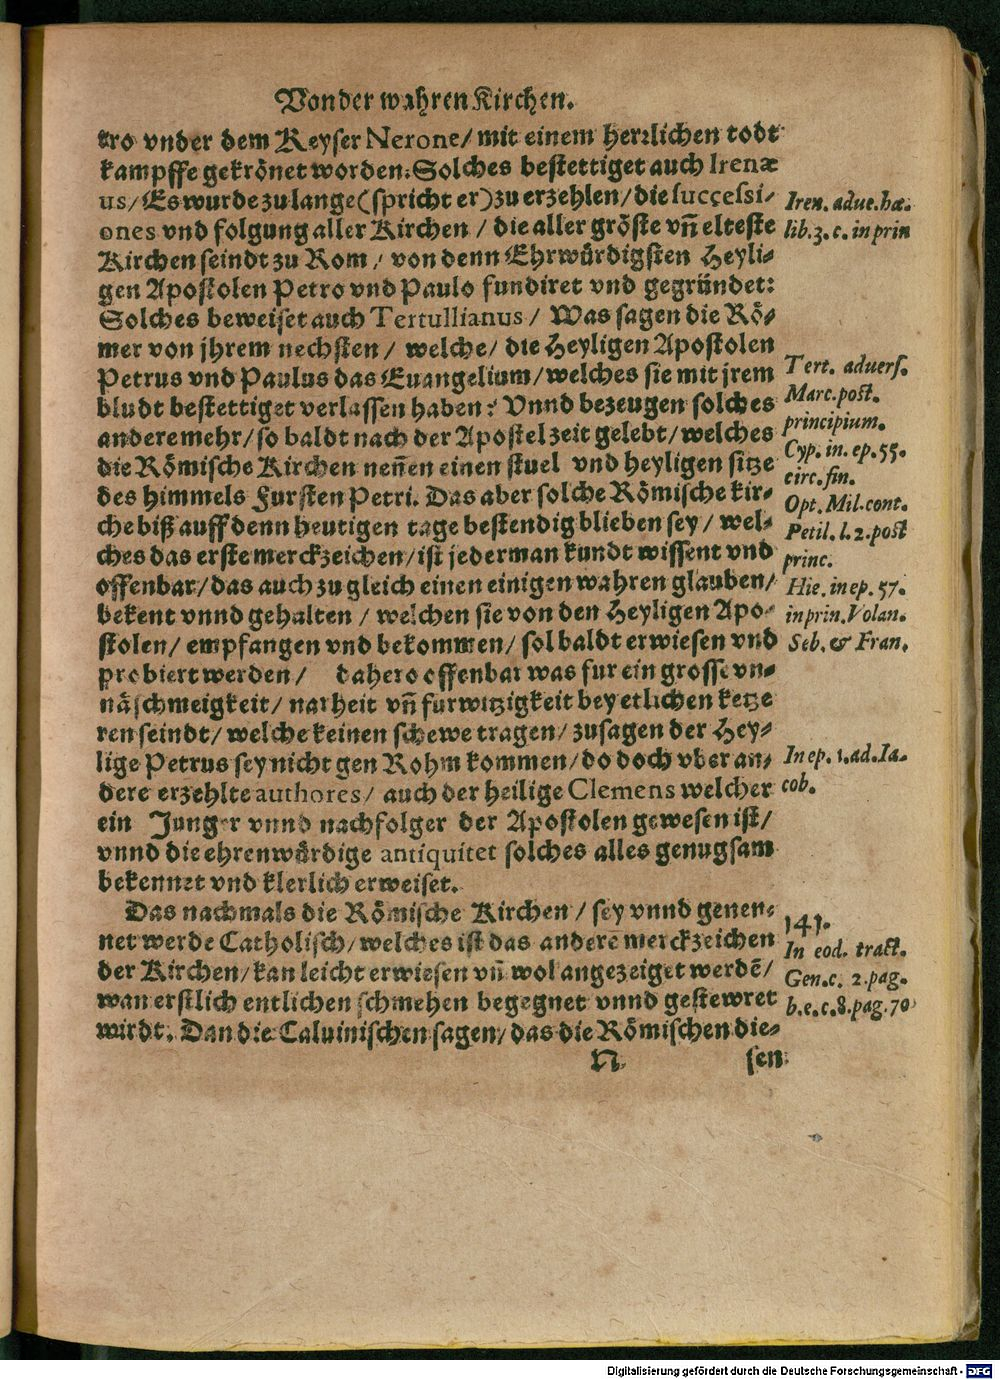 Von der wahren Kirchen.
tro vnder dem Keyser Nerone/ mit einem herrlichen todt
kampffe gekrönet worden. Solches bestettiget auch Irenæ
us/ Es wurde zu lange (spricht er) zu erzehlen/ die successi-
ones vnd folgung aller Kirchen / die aller gröste vñ elteste
Kirchen seindt zu Rom / von denn Ehrwürdigsten Heyli-
gen Apostolen Petro vnd Paulo fundiret vnd gegründet:
Solches beweiset auch Tertullianus / Was sagen die Rö-
mer von jhrem nechsten / welche/ die Heyligen Apostolen
Petrus vnd Paulus das Euangelium/ welches sie mit jrem
bludt bestettiget verlassen haben: Vnnd bezeugen solches
andere mehr/ so baldt nach der Apostel zeit gelebt/ welches
die Römische Kirchen neñen einen stuel vnd heyligen sitze
des himmels Fursten Petri. Das aber solche Römische kir-
che biß auff denn heutigen tage bestendig blieben sey / wel-
ches das erste merckzeichen/ ist jederman kundt wissent vnd
offenbar/ das auch zu gleich einen einigen wahren glauben/
bekent vnnd gehalten / welchen sie von den Heyligen Apo-
stolen/ empfangen vnd bekommen/ sol baldt erwiesen vnd
probiert werden / dahero offenbar was fur ein grosse vn-
näschmeigkeit/ narheit vñ furwitzigkeit bey etlichen ketze
ren seindt/ welche keinen schewe tragen/ zusagen der Hey-
lige Petrus sey nicht gen Rohm kommen/ do doch vber an-
dere erzehlte authores/ auch der heilige Clemens welcher
ein Junger vnnd nachfolger der Apostolen gewesen ist/
vnnd die ehrenwürdige antiquitet solches alles genugsam
bekennet vnd klerlich erweiset.
Das nachmals die Römische Kirchen / sey vnnd genen-
net werde Catholisch/ welches ist das anderẽ merckzeichen
der Kirchen/ kan leicht erwiesen vñ wol angezeiget werdẽ/
wan erstlich entlichen schmehen begegnet vnnd gestewret
wirdt. Dan die Caluinischen sagen/ das die Römischen die-
N sen
Iren. adue. hæ.
lib. 3. c. in prin
Tert. aduers.
Marc. post.
principium.
Cyp. in. ep. 55.
circ. fin.
Opt. Mil. cont.
Petil. l. 2. post
princ.
Hie. in ep. 57.
in prin. Volan.
Seb. & Fran.
In ep. 1. ad. Ia-
cob.
141.
In eod. tract.
Gen. c. 2. pag.
b. e. c. 8. pag. 70
Digitalisierung gefördert durch die Deutsche Forschungsgemeinschaft - DFG